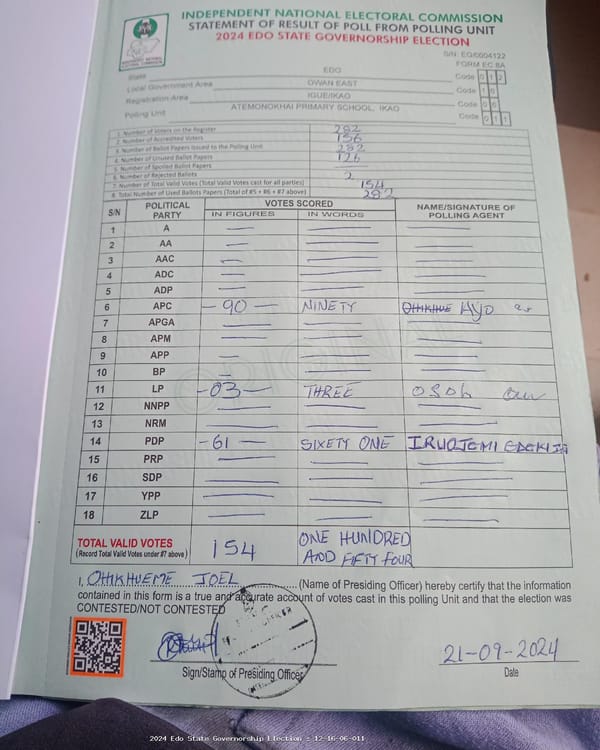 INDEPENDENT NATIONAL ELECTORAL COMMISSION
STATEMENT OF RESULT OF POLL FROM POLLING UNIT
2024 EDO STATE GOVERNORSHIP ELECTION
S/N: EG/0004122
FORM EC 8A
State EDO Code 0 1 2
Local Government Area OWAN EAST Code 1 6
Registration Area IGUE/IKAO Code 0 6
Polling Unit ATEMONOKHAI PRIMARY SCHOOL, IKAO Code 0 1 1
1. Number of Voters on the Register 282
2. Number of Accredited Voters 156
3. Number of Ballot Papers Issued to the Polling Unit 282
4. Number of Unused Ballot Papers 126
5. Number of Spoiled Ballot Papers
6. Number of Rejected Ballots 2
7. Number of Total Valid Votes (Total Valid Votes cast for all parties) 154
8. Total Number of Used Ballots Papers (Total of #5 + #6 + #7 above) 282
S/N POLITICAL PARTY VOTES SCORED NAME/SIGNATURE OF POLLING AGENT
IN FIGURES IN WORDS
1 A
2 AA
3 AAC
4 ADC
5 ADP
6 APC -90- NINETY AYO
7 APGA
8 APM
9 APP
10 BP
11 LP -03- THREE OSOH
12 NNPP
13 NRM
14 PDP -61- SIXTY ONE
15 PRP
16 SDP
17 YPP
18 ZLP
TOTAL VALID VOTES 154 ONE HUNDRED
(Record Total Valid Votes under #7 above) AND FIFTY FOUR
I, OHIKHUEME JOEL (Name of Presiding Officer) hereby certify that the information
contained in this form is a true and accurate account of votes cast in this polling Unit and that the election was
CONTESTED/NOT CONTESTED
21-09-2024
Sign/Stamp of Presiding Officer Date
2024 Edo State Governorship Election : 12-16-06-011